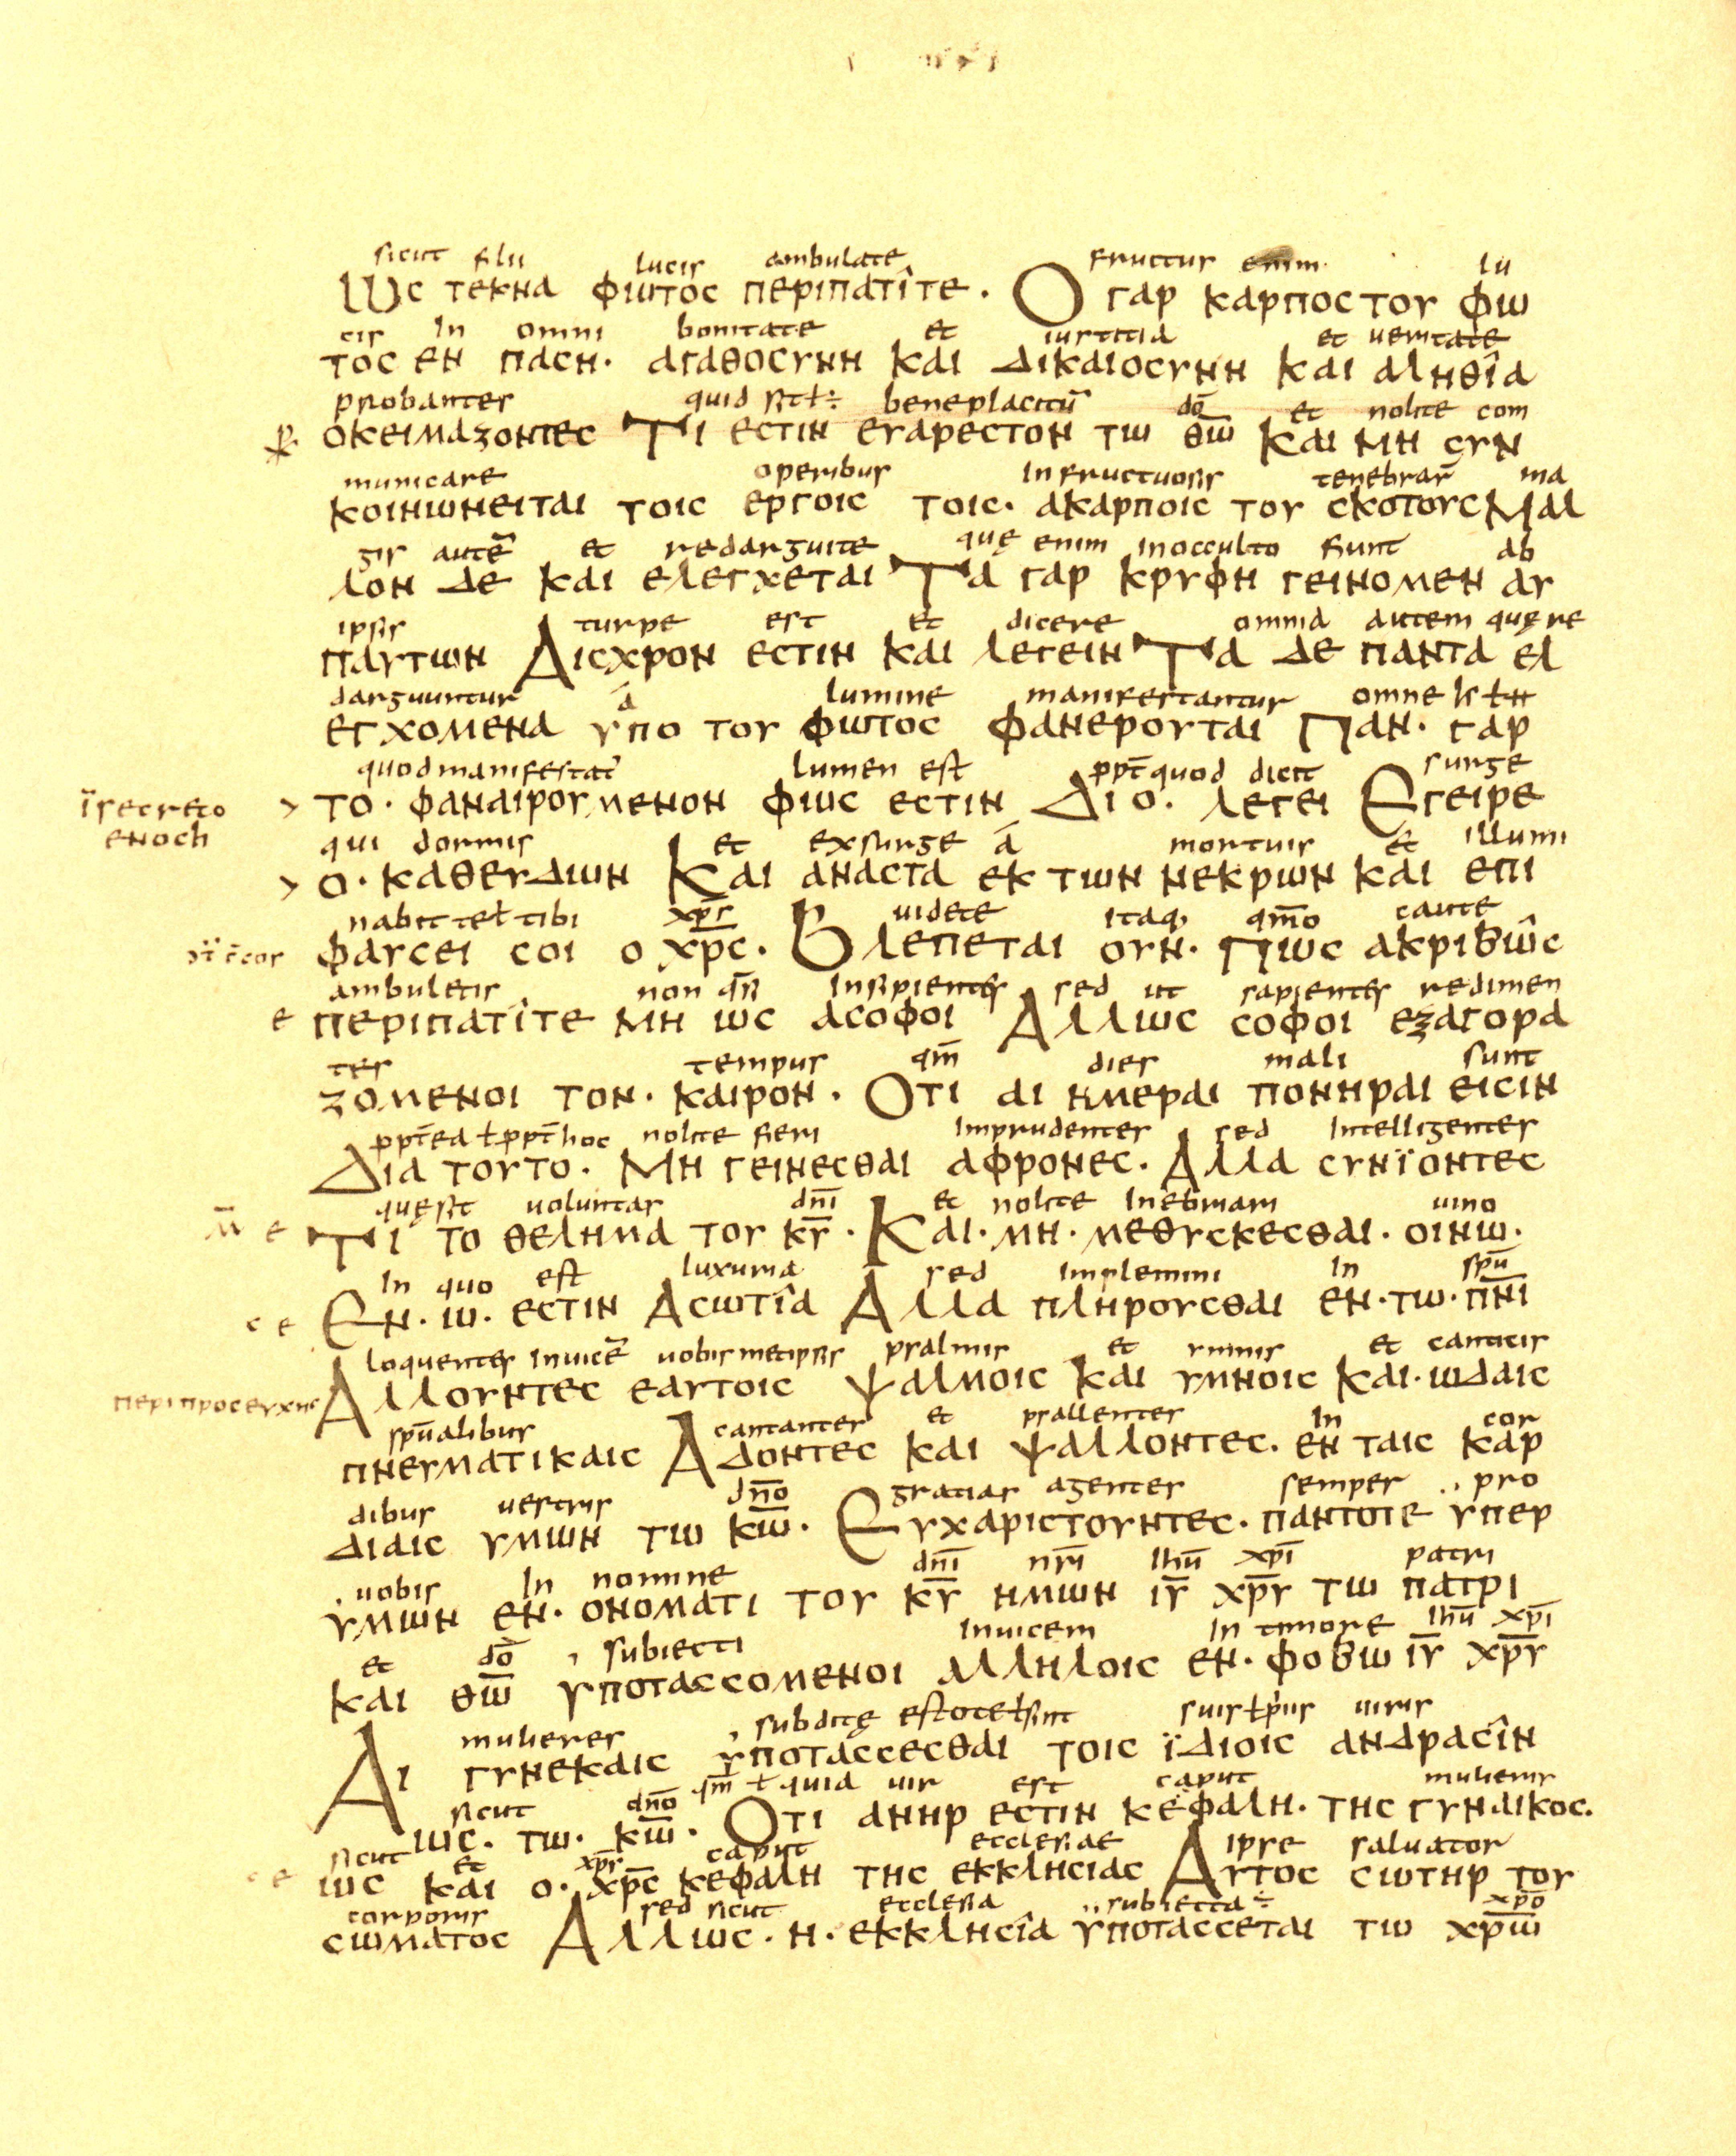 sicut filii lucis ambulate fructus enim lu
Ως τεκνα φωτος περιπατîτε · Ο γαρ καρπος του φω
cis In omni bonitate et iustitia et ueritate
τος εν παση · αγαθοσυνη Και δικαιοσυνη και αληθîα
probantes quid sit ł ÷ beneplacitū dō et nolite com
οκειμαζοντες Τι εστιν ευαρεστον τω θω̅ Και μη συν
municare operibus Infructuosis tenebrar̄ ma
κοινωνειται τοις εργοις τοις · ακαρποις του σκοτους Μαλ
gis autē et redarguite quę enim Inocculto fiunt ab
λον δε και ελεγχεται Τα γαρ κρυφη γεινομεν αυ
ipsis turpe est et dicere omnia autem quę re
παυτων Αισχρον εστιν και λεγειν Τα δε παντα ελ
darguuntur á lumine manifestantur omne
εγχομενα υπο του φωτος φανερουται Παν · γαρ
quod manifestat̄ lumen est ppt̄ quod dicit surge
ïsecreto
enoch
> το · φαναιρουμενον φως εστιν Διο · λεγει Εγειρε
qui dormis et exsurge á mortuis et illumi
> ο · καθευδιων Και αναστα εκ των νεκρων και επι
nabit te ł tibi xp̄s uidete itaq, qm̄o caute
φαυσει σοι ο χρ̅ς · Βλεπεται ουν · Πως ακριβω̂ς
ambuletis non q̄si Insipientes sed ut sapientes redimen
ε περιπατîτε μη ως ασοφοι Αλλως σοφοι εξαγορα
tes tempus qm̄ dies mali sunt
ζομενοι τον · καιρον · Οτι αι ημεραι πονηραι εισιν
ppt̄ea ł ppt̄ hoc nolite fieri Imprudentes sed Intelligentes
Δια τουτο · Μη γεινεσθαι αφρονες · Αλλα συνϊοντες
quę sit uoluntas dn̄i et nolite Inebriari uino
ε Τι το θελημα του κυ̅ · Και · μη · μεθυσκεσθαι · οινω ·
In quo est luxuria sed Implemini In spū
ς ε Εν · ω · εστιν Ασωτîα Αλλα πληρουσθαι εν · τω · πν̅ι
loquentes Inuicē uobis metipsis psalmis et ymnis et canticis
περι προσευχης Αλλουντες εαυτοις ψαλμοις και υμνοις και · ωδαις
spūalibus cantantes et psallentes In cor
πνευματικαις Αδοντες και ψαλλοντες · εν ταις καρ
dibus uestris dn̄o gratias agentes semper pro
διαις υμων τω κω̅ · Ευχαριστουντες · παντοτε υπερ
uobis In nomine dn̄i nr̄i Ihū xp̄i patri
υμων εν · ονοματι του κυ̅ ημων ιυ̅ χρ̅υ τω πατρι
et dō subiecti Inuicem In timore Ihū xp̄i
και θω̅ υποτασσομενοι αλληλοις εν · φοβω ιυ̅ χρ̅υ
mulieres subditę estote ł sint suis ł ppiis uiris
Αι γυνεκαις υποτασσεσθαι τοις ϊδιοις ανδρασîν
sicut dn̄o qm̄ ł quia uir est caput mulieris
ως · τω · κω̅ · Οτι ανηρ εστιν κεφαλη · της γυναικος ·
sicut et xp̄s caput ecclesiae ipse saluator
ς ε ως και ο · χρ̅ς κεφαλη της εκκλησιας Αυτος σωτηρ του
corporis sed sicut ecclesia subiecta ÷ xp̄o
σωματος Αλλως · η · εκκλησîα υποτασσεται τω χρ̅ω